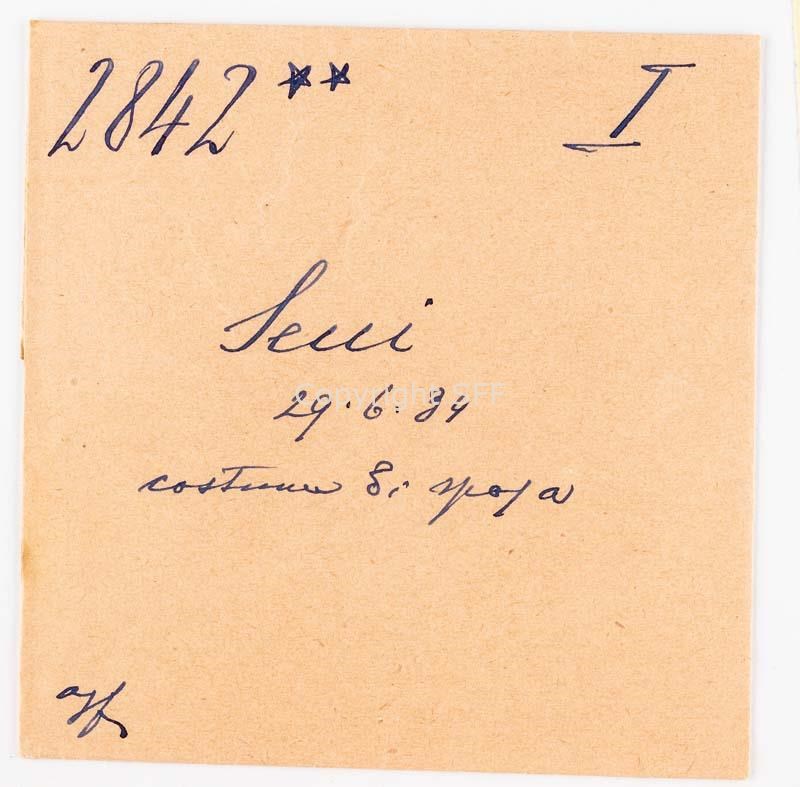 2842** I
Seui
Copyright SFF
29.6.34
costume di sposa